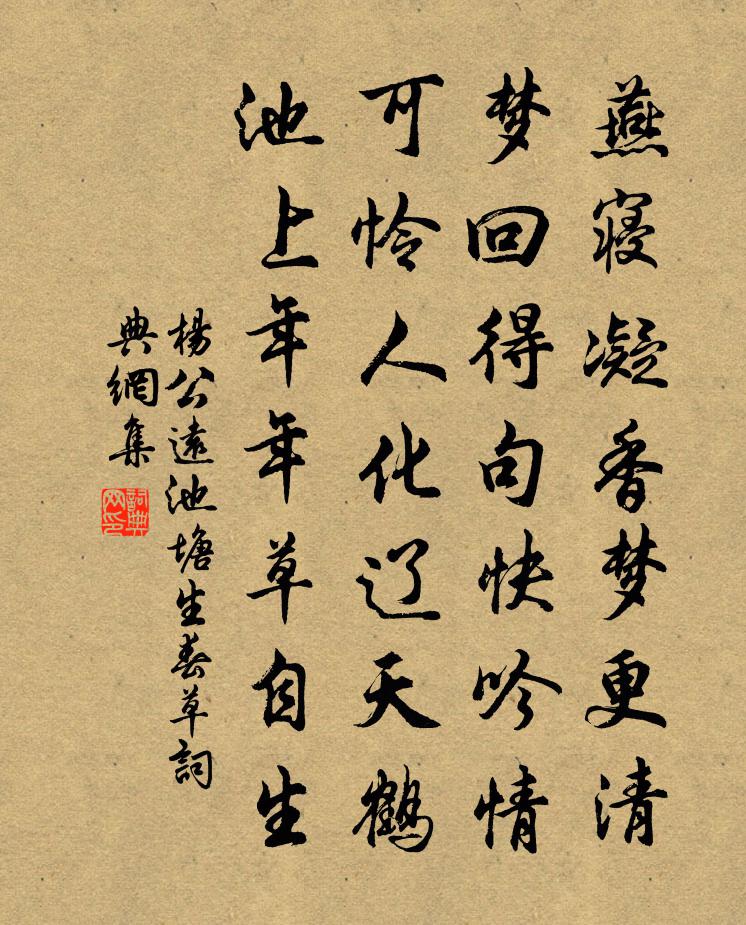 燕寝凝香梦更清
梦回得句快吟情
可怜人化辽天鹤
池上年年草自生
楊公遠池塘生春草詞
典網集
詞典
网印